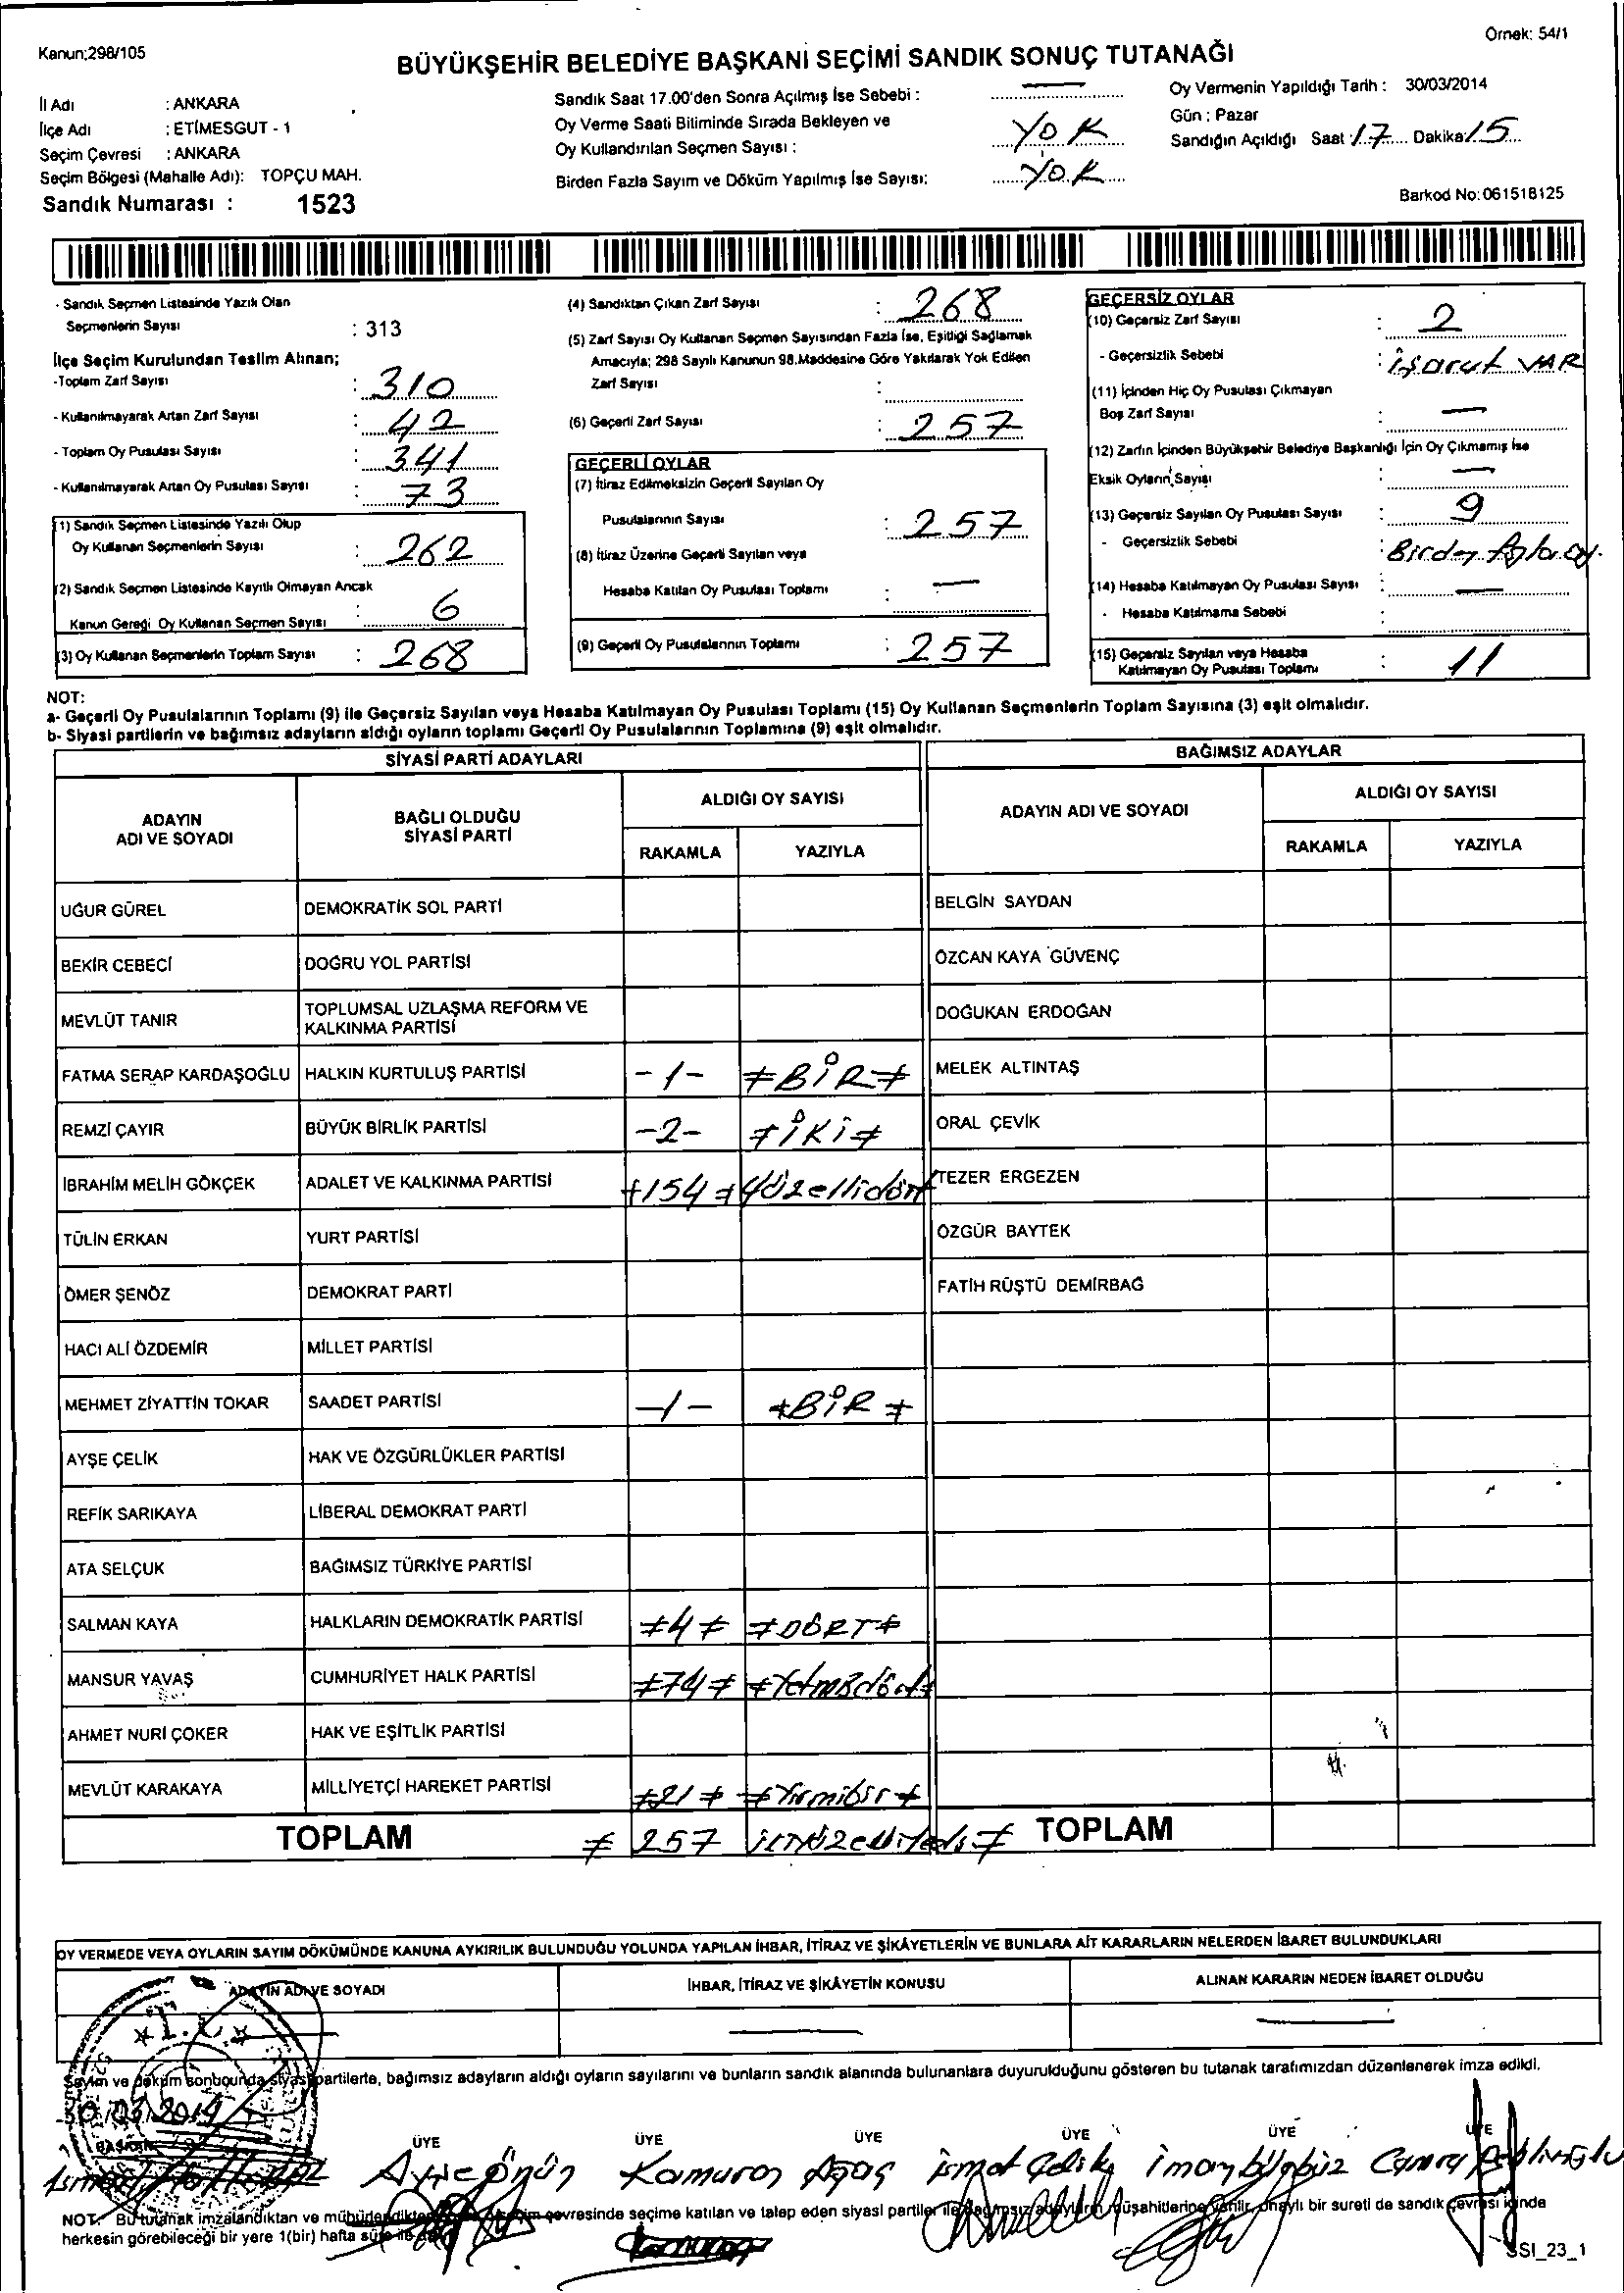 Kanun;298/105
Örnek: 54/1
BÜYÜKŞEHİR BELEDİYE BAŞKANI SEÇİMİ SANDIK SONUÇ TUTANAĞI
İl Adı : ANKARA
İlçe Adı : ETİMESGUT - 1
Seçim Çevresi : ANKARA
Seçim Bölgesi (Mahalle Adı): TOPÇU MAH.
Sandık Numarası : 1523
Sandık Saat 17.00'den Sonra Açılmış İse Sebebi : —
Oy Verme Saati Bitiminde Sırada Bekleyen ve
Oy Kullandırılan Seçmen Sayısı : YOK
Birden Fazla Sayım ve Döküm Yapılmış İse Sayısı: YOK
Oy Vermenin Yapıldığı Tarih : 30/03/2014
Gün : Pazar
Sandığın Açıldığı Saat : 17 Dakika 15
Barkod No:061518125
- Sandık Seçmen Listesinde Yazılı Olan
Seçmenlerin Sayısı : 313
İlçe Seçim Kurulundan Teslim Alınan;
-Toplam Zarf Sayısı : 310
- Kullanılmayarak Artan Zarf Sayısı : 42
- Toplam Oy Pusulası Sayısı : 341
- Kullanılmayarak Artan Oy Pusulası Sayısı : 73
(1) Sandık Seçmen Listesinde Yazılı Olup
Oy Kullanan Seçmenlerin Sayısı : 262
(2) Sandık Seçmen Listesinde Kayıtlı Olmayan Ancak
Kanun Gereği Oy Kullanan Seçmen Sayısı : 6
(3) Oy Kullanan Seçmenlerin Toplam Sayısı : 268
(4) Sandıktan Çıkan Zarf Sayısı : 268
(5) Zarf Sayısı Oy Kullanan Seçmen Sayısından Fazla İse, Eşitliği Sağlamak
Amacıyla; 298 Sayılı Kanunun 98.Maddesine Göre Yakılarak Yok Edilen
Zarf Sayısı :
(6) Geçerli Zarf Sayısı : 257
GEÇERLİ OYLAR
(7) İtiraz Edilmeksizin Geçerli Sayılan Oy
Pusulalarının Sayısı : 257
(8) İtiraz Üzerine Geçerli Sayılan veya
Hesaba Katılan Oy Pusulası Toplamı : —
(9) Geçerli Oy Pusulalarının Toplamı : 257
GEÇERSİZ OYLAR
(10) Geçersiz Zarf Sayısı : 2
- Geçersizlik Sebebi : işaret VAR
(11) İçinden Hiç Oy Pusulası Çıkmayan
Boş Zarf Sayısı : —
(12) Zarfın İçinden Büyükşehir Belediye Başkanlığı İçin Oy Çıkmamış İse
Eksik Oyların Sayısı : —
(13) Geçersiz Sayılan Oy Pusulası Sayısı : 9
- Geçersizlik Sebebi : Birden fazla oy.
(14) Hesaba Katılmayan Oy Pusulası Sayısı : —
- Hesaba Katılmama Sebebi :
(15) Geçersiz Sayılan veya Hesaba
Katılmayan Oy Pusulası Toplamı : 11
NOT:
a- Geçerli Oy Pusulalarının Toplamı (9) ile Geçersiz Sayılan veya Hesaba Katılmayan Oy Pusulası Toplamı (15) Oy Kullanan Seçmenlerin Toplam Sayısına (3) eşit olmalıdır.
b- Siyasi partilerin ve bağımsız adayların aldığı oyların toplamı Geçerli Oy Pusulalarının Toplamına (9) eşit olmalıdır.
SİYASİ PARTİ ADAYLARI
BAĞIMSIZ ADAYLAR
ADAYIN
ADI VE SOYADI
BAĞLI OLDUĞU
SİYASİ PARTİ
ALDIĞI OY SAYISI
RAKAMLA YAZIYLA
ADAYIN ADI VE SOYADI
ALDIĞI OY SAYISI
RAKAMLA YAZIYLA
UĞUR GÜREL DEMOKRATİK SOL PARTİ BELGİN SAYDAN
BEKİR CEBECİ DOĞRU YOL PARTİSİ ÖZCAN KAYA GÜVENÇ
MEVLÜT TANIR TOPLUMSAL UZLAŞMA REFORM VE
KALKINMA PARTİSİ DOĞUKAN ERDOĞAN
FATMA SERAP KARDAŞOĞLU HALKIN KURTULUŞ PARTİSİ -1- ≠BİR≠ MELEK ALTINTAŞ
REMZİ ÇAYIR BÜYÜK BİRLİK PARTİSİ -2- ≠İKİ≠ ORAL ÇEVİK
İBRAHİM MELİH GÖKÇEK ADALET VE KALKINMA PARTİSİ ≠154≠ Yüzellidört TEZER ERGEZEN
TÜLİN ERKAN YURT PARTİSİ ÖZGÜR BAYTEK
ÖMER ŞENÖZ DEMOKRAT PARTİ FATİH RÜŞTÜ DEMİRBAĞ
HACI ALİ ÖZDEMİR MİLLET PARTİSİ
MEHMET ZİYATTİN TOKAR SAADET PARTİSİ -1- ≠BİR≠
AYŞE ÇELİK HAK VE ÖZGÜRLÜKLER PARTİSİ
REFİK SARIKAYA LİBERAL DEMOKRAT PARTİ
ATA SELÇUK BAĞIMSIZ TÜRKİYE PARTİSİ
SALMAN KAYA HALKLARIN DEMOKRATİK PARTİSİ ≠4≠ ≠DÖRT≠
MANSUR YAVAŞ CUMHURİYET HALK PARTİSİ ≠74≠ ≠Yetmişdört≠
AHMET NURİ ÇOKER HAK VE EŞİTLİK PARTİSİ
MEVLÜT KARAKAYA MİLLİYETÇİ HAREKET PARTİSİ ≠21≠ ≠Yirmibir≠
TOPLAM ≠ 257 ikiyüzelliyedi ≠ TOPLAM
OY VERMEDE VEYA OYLARIN SAYIM DÖKÜMÜNDE KANUNA AYKIRILIK BULUNDUĞU YOLUNDA YAPILAN İHBAR, İTİRAZ VE ŞİKÂYETLERİN VE BUNLARA AİT KARARLARIN NELERDEN İBARET BULUNDUKLARI
ADAYIN ADI VE SOYADI İHBAR, İTİRAZ VE ŞİKÂYETİN KONUSU ALINAN KARARIN NEDEN İBARET OLDUĞU
T.C.
Sayım ve döküm sonucunda siyasi partilerle, bağımsız adayların aldığı oyların sayılarını ve bunların sandık alanında bulunanlara duyurulduğunu gösteren bu tutanak tarafımızdan düzenlenerek imza edildi.
30/03/2014
BAŞKAN ÜYE ÜYE ÜYE ÜYE ÜYE ÜYE
Ayşe Kamuran Ağaç ismet
NOT: Bu tutanak imzalandıktan ve mühürlendikten seçim çevresinde seçime katılan ve talep eden siyasi partiler ile bağımsız adayların müşahitlerine verilir, onaylı bir sureti de sandık çevresi içinde
herkesin görebileceği bir yere 1(bir) hafta süre ile
SSI_23_1